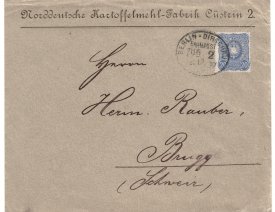 Norddeutsche Kartoffelmehl-Fabrik Cüstrin 2.
BERLIN - DIRS
BAHNPOST
2
Herrn
Herm. Rauber,
Brugg
(Schweiz)